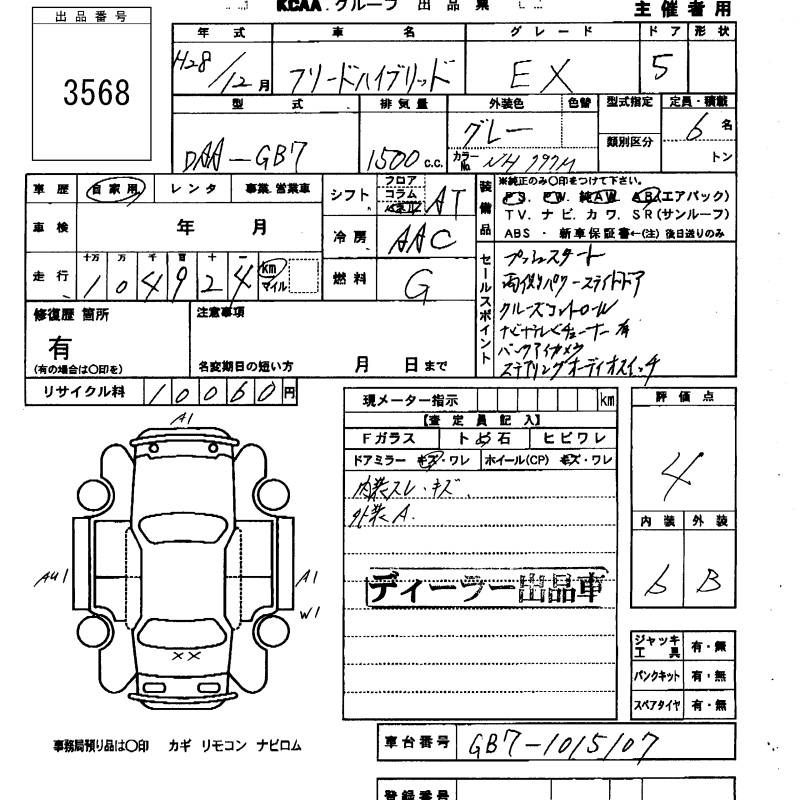 KCAA.グループ 出品票
主催者用
出品番号
3568
年式 車名 グレード ドア 形状
H28/12月 フリードハイブリッド EX 5
型式 排気量 外装色 色替 型式指定 定員・積載
DAA-GB7 1500c.c. グレー 類別区分 6名
カラーNo. NH797M トン
車歴 自家用 レンタ 事業.営業車
車検 年 月
走行 十万 万 千 百 十 一
104924 km マイル
シフト フロア コラム パネル AT
冷房 AAC
燃料 G
装備品
※純正のみ〇印をつけて下さい。
PS. PW. 純AW. AB(エアバック)
TV. ナビ. カワ. SR(サンルーフ)
ABS ・ 新車保証書←(注)後日送りのみ
セールスポイント
プッシュスタート
両側パワースライドドア
クルーズコントロール
ナビテレビチューナー有
バックアイカメラ
ステアリングオーディオスイッチ
修復歴 箇所
有
(有の場合は〇印を)
注意事項
名変期日の短い方 月 日まで
リサイクル料 10060円
現メーター指示 km
【査定員記入】
Fガラス トび石 ヒビワレ
ドアミラー キズ・ワレ ホイール(CP) キズ・ワレ
内装スレ・キズ
外装A.
ディーラー出品車
評価点
4
内装 外装
6 B
A1
AU1
A1
W1
XX
ジャッキ工具 有・無
パンクキット 有・無
スペアタイヤ 有・無
事務局預り品は〇印 カギ リモコン ナビロム
車台番号 GB7-1015107
登録番号